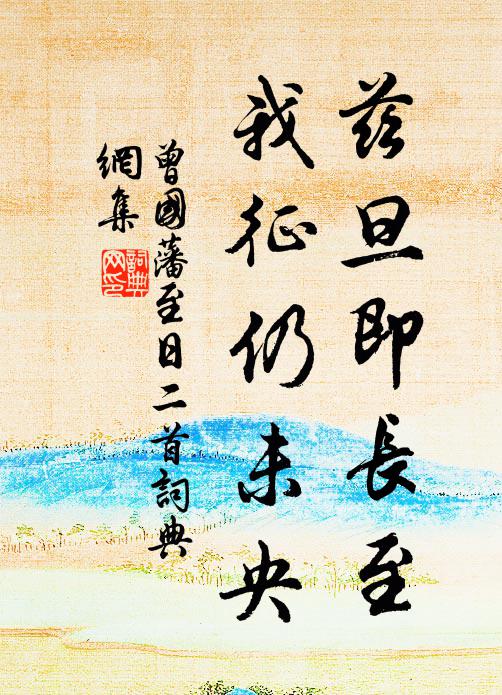 茲旦即長至
我征仍未央
曾國藩至日二首詞典
網集
詞典
网印